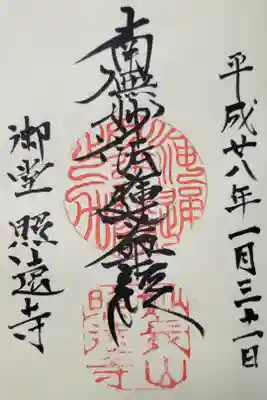 平成廿八年一月三十一日
南無妙法蓮華経
御堂 照遠寺